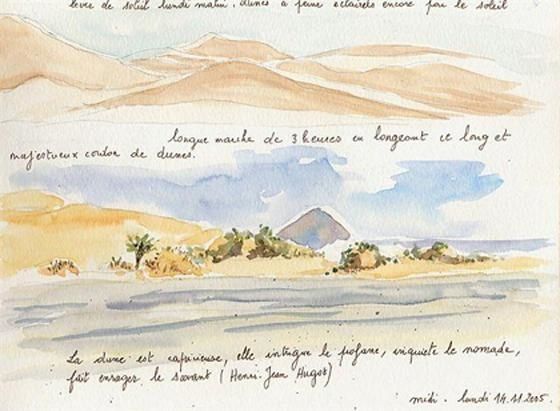 lever de soleil lundi matin. dunes à peine éclairées encore par le soleil
longue marche de 3 heures en longeant ce long et
majestueux cordon de dunes.
La dune est capricieuse, elle intrigue le profane, inquiète le nomade,
fait enrager le savant (Henri-Jean Hugot)
midi. lundi 14.11.2005.